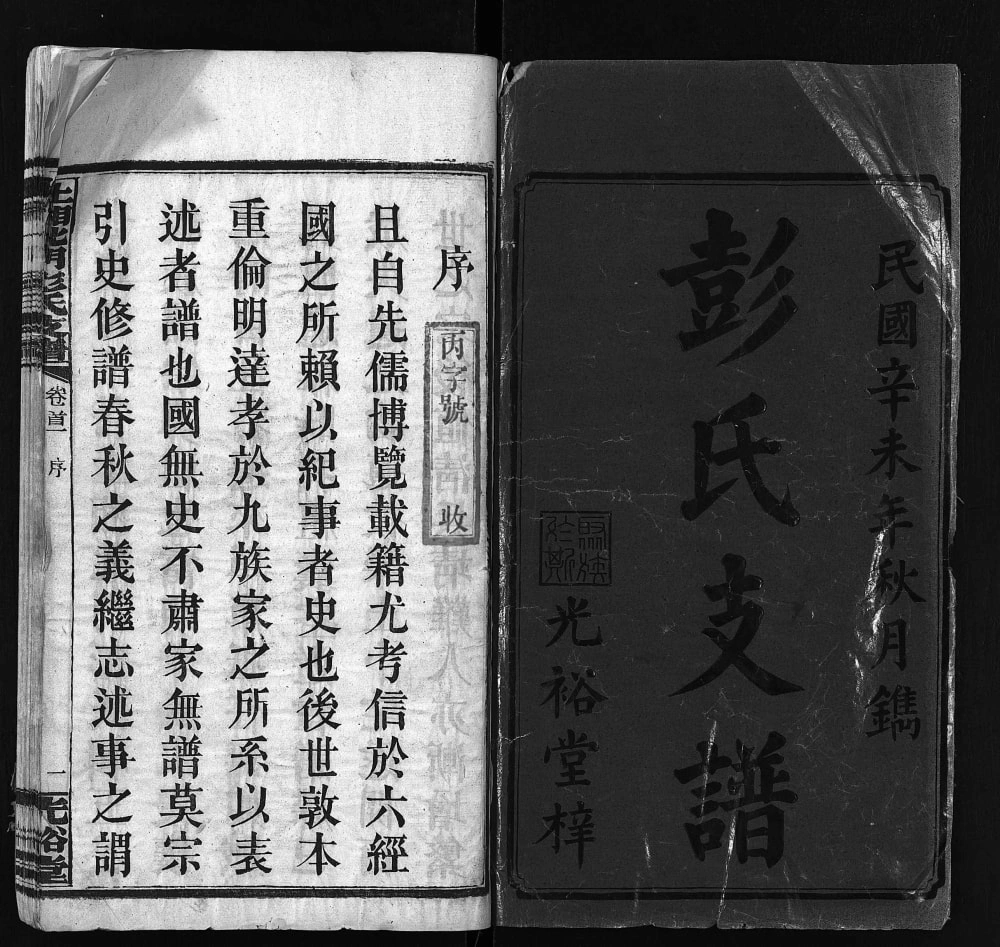 民國辛未年秋月鐫
彭氏支譜
光裕堂梓
序
丙字號
收
且自先儒博覽載籍尤考信於六經
國之所賴以紀事者史也後世敦本
重倫明達孝於九族家之所系以表
述者譜也國無史不肅家無譜莫宗
引史修譜春秋之義繼志述事之謂
彭氏支譜
卷首
序
一
光裕堂